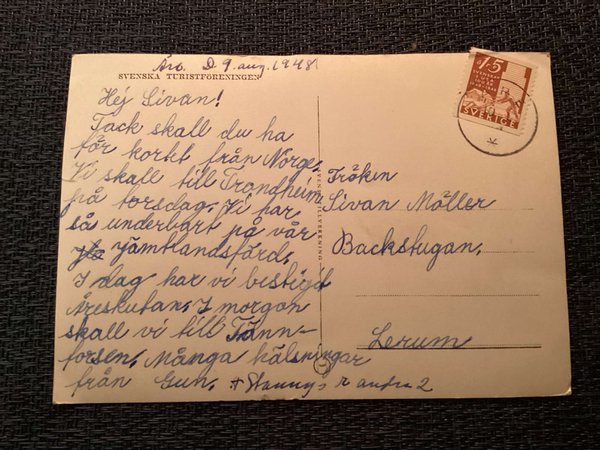 Åre. D. 9. aug. 1948.
SVENSKA TURISTFÖRENINGEN
Hej Sivan!
Tack skall du ha
för kortet från Norge.
Vi skall till Trondheim
på torsdag. Vi har
så underbart på vår
Jämtlandsfärd.
I dag har vi bestigit
Åreskutan. I morgon
skall vi till Tänn-
forsen. Många hälsningar
från Gun.
andra 2
Fröken
Sivan Möller
Backstugan.
Lerum
15
SVERIGE